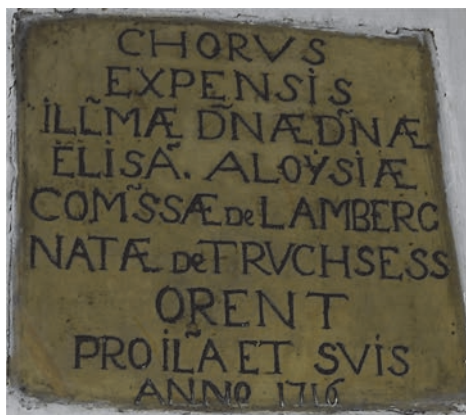 CHORVS
EXPENSIS
ILL̃MÆ D̃NÆ D̃NÆ
ELISÃ. ALOŸSIÆ
COM̃SSÆ de LAMBERG
NATÆ de TRVCHSESS
ORENT
PRO IL̃A ET SVIS
ANNO 1716